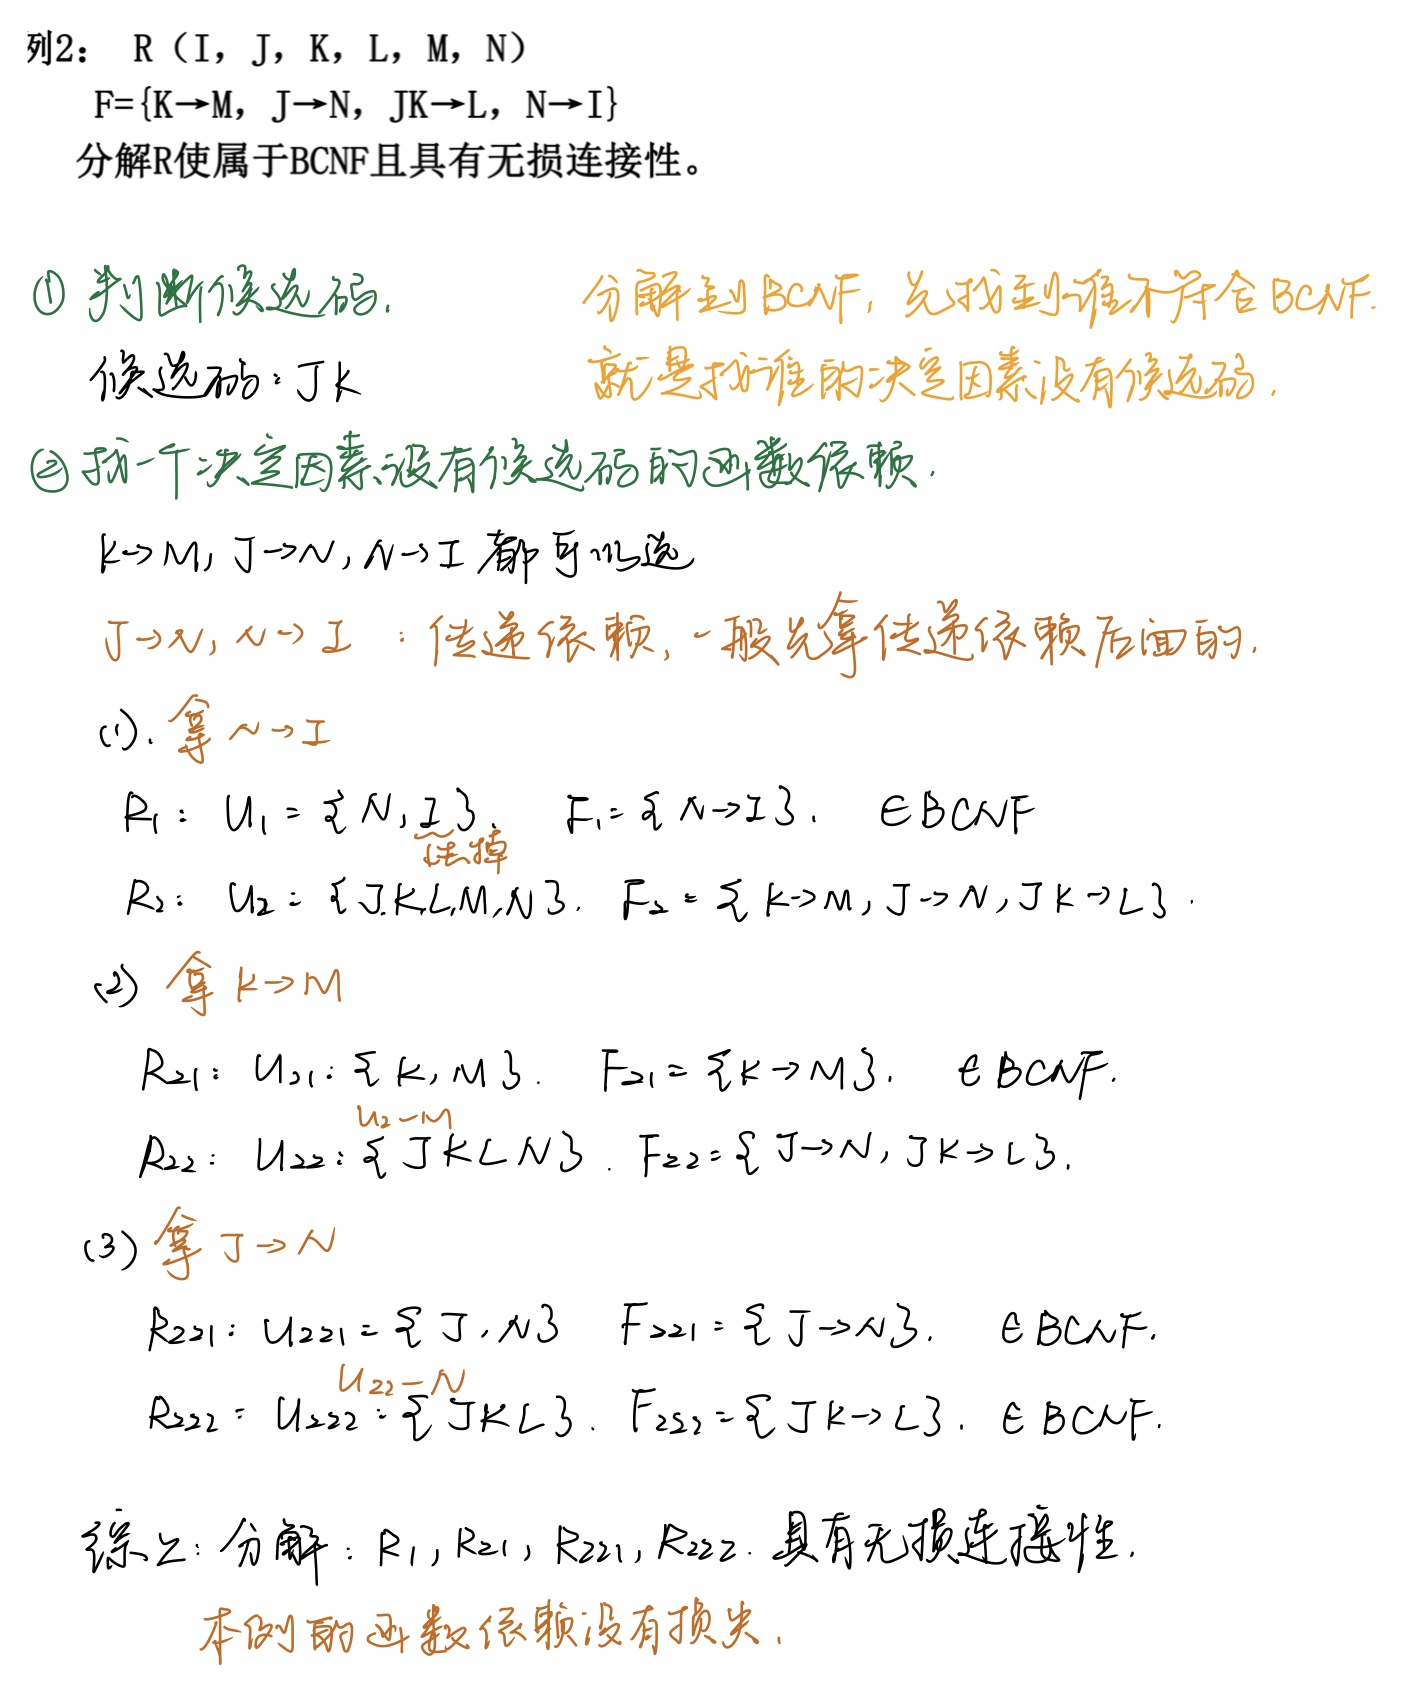 列2： R（I，J，K，L，M，N）
F={K→M，J→N，JK→L，N→I}
分解R使属于BCNF且具有无损连接性。
① 判断候选码.
分解到BCNF，先找到谁不符合BCNF.
候选码：JK
就是找谁的决定因素没有候选码.
② 找一个决定因素没有候选码的函数依赖.
K→M, J→N, N→I 都可以选
J→N, N→I ：传递依赖, 一般先拿传递依赖后面的.
(1). 拿 N→I
R₁： U₁ = {N, I}. F₁ = {N→I}. ∈BCNF
去掉
R₂： U₂ = {J,K,L,M,N}. F₂ = {K→M, J→N, JK→L}.
(2) 拿 K→M
R₂₁： U₂₁: {K, M}. F₂₁ = {K→M}. ∈BCNF.
U₂-M
R₂₂： U₂₂: {JKLN}. F₂₂ = {J→N, JK→L}.
(3) 拿 J→N
R₂₂₁: U₂₂₁ = {J, N} F₂₂₁ = {J→N}. ∈BCNF.
U₂₂-N
R₂₂₂: U₂₂₂: {JKL}. F₂₂₂ = {JK→L}. ∈BCNF.
综上: 分解: R₁, R₂₁, R₂₂₁, R₂₂₂. 具有无损连接性.
本例的函数依赖没有损失.